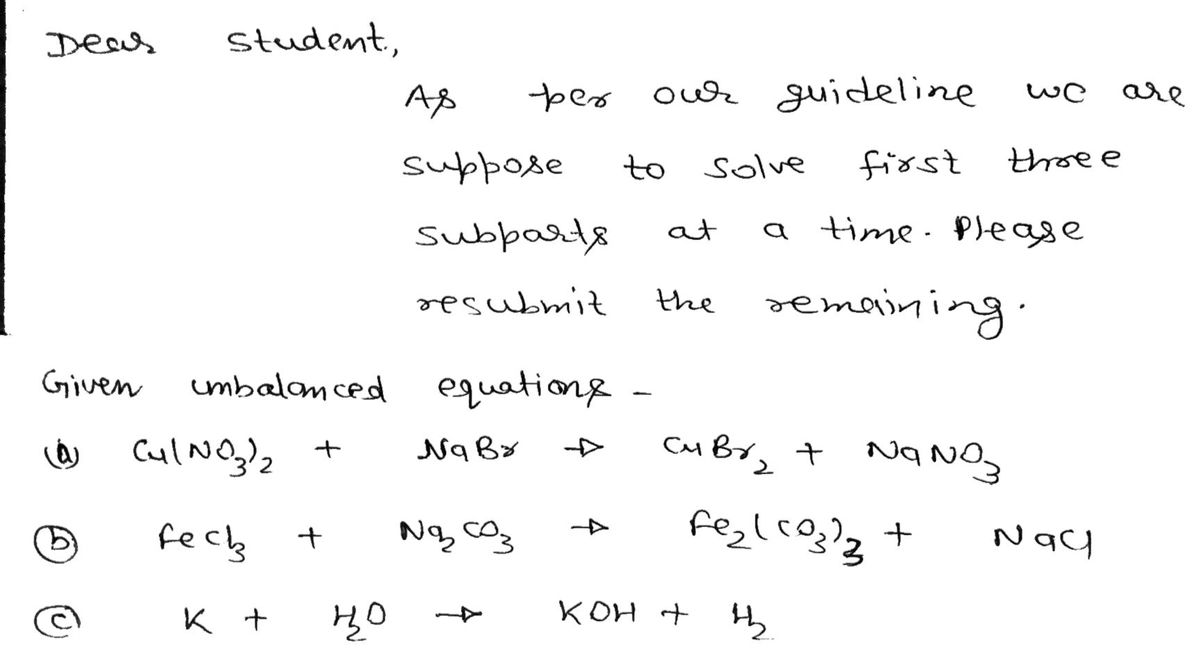 Dear student,
As per our guideline we are
suppose to solve first three
subparts at a time. Please
resubmit the remaining.
Given unbalanced equations -
(a) Cu(NO₃)₂ + NaBr → CuBr₂ + NaNO₃
(b) FeCl₃ + Na₂CO₃ → Fe₂(CO₃)₃ + NaCl
(c) K + H₂O → KOH + H₂